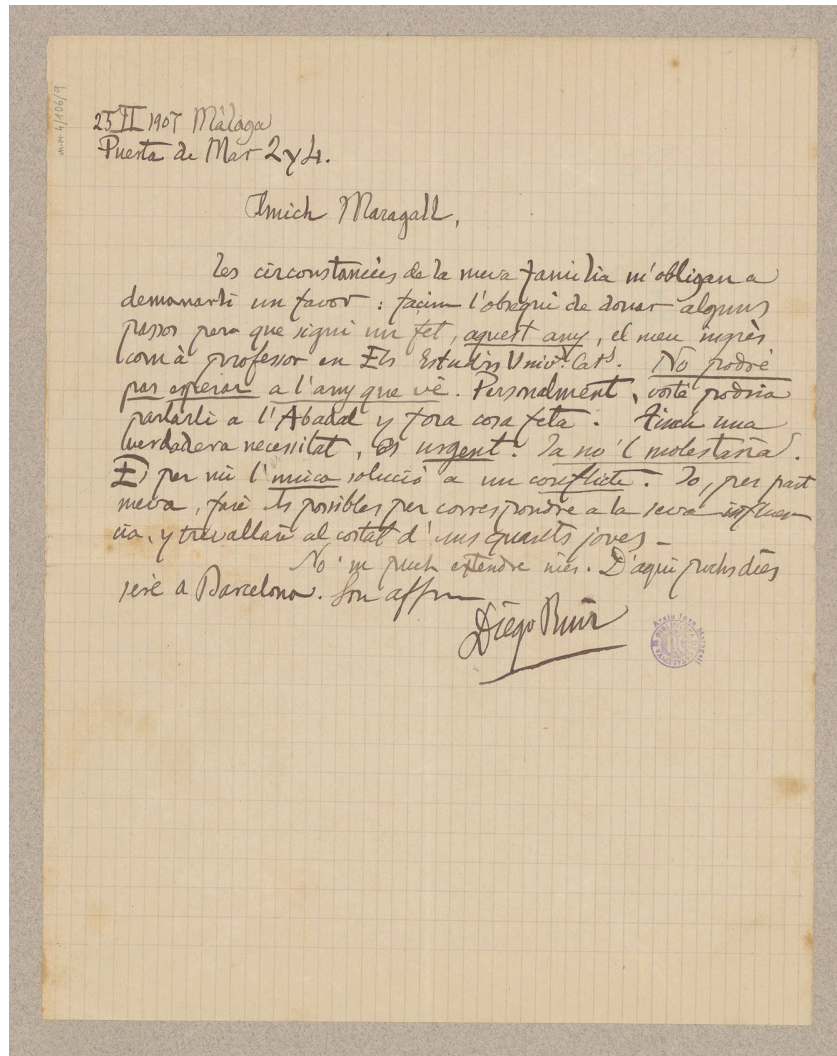 25 II 1907 Málaga
Puerta de Mar 2 y 4.
Amich Maragall,
Les circonstancies de la meva familia m'obligan a
demanarli un favor : fassim l'obsequi de donar alguns
passos pera que sigui un fet, aquest any, el meu ingrés
com à professor en Els Estudis Univ.s Cat.s. No podré
pas esperar a l'any que vè. Personalment, vosté podria
parlarli a l'Abadal y fora cosa feta. Tinch una
verdadera necessitat, es urgent. Ja no'l molestaria.
Es per mi l'unica solució a un conflicte. Jo, per part
meva, faré els possibles per correspondre a la seva influen-
cia, y treuallaré al costat d'uns quants joves -
No'm puch extendre més. D'aqui puchs dies
seré a Barcelona. Son affm
Diego Ruiz
Mr. 4/106/9
Arxiu Joan Maragall